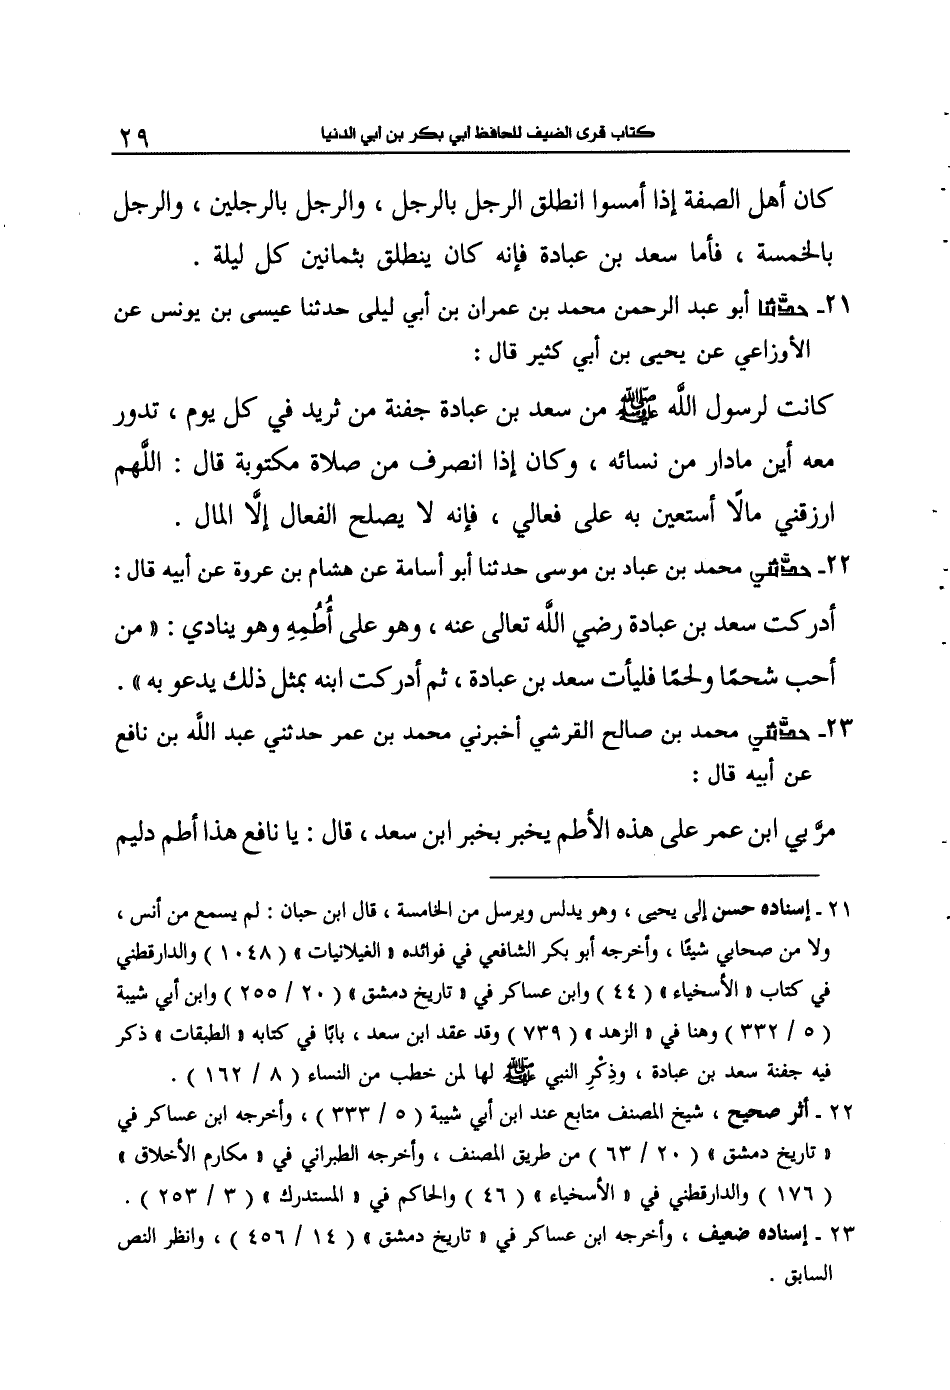 كتاب قرى الضيف للحافظ أبي بكر بن أبي الدنيا
٢٩
كان أهل الصفة إذا أمسوا انطلق الرجل بالرجل ، والرجل بالرجلين ، والرجل
بالخمسة ، فأما سعد بن عبادة فإنه كان ينطلق بثمانين كل ليلة .
٢١ـ حدَّثنا أبو عبد الرحمن محمد بن عمران بن أبي ليلى حدثنا عيسى بن يونس عن
الأوزاعي عن يحيى بن أبي كثير قال :
كانت لرسول اللَّه ﷺ من سعد بن عبادة جفنة من ثريد في كل يوم ، تدور
معه أين مادار من نسائه ، وكان إذا انصرف من صلاة مكتوبة قال : اللَّهم
ارزقني مالًا أستعين به على فعالي ، فإنه لا يصلح الفعال إلَّا المال .
٢٢ـ حدَّثني محمد بن عباد بن موسى حدثنا أبو أسامة عن هشام بن عروة عن أبيه قال :
أدركت سعد بن عبادة رضي اللَّه تعالى عنه ، وهو على أُطُمِهِ وهو ينادي : « من
أحب شحمًا ولحمًا فليأت سعد بن عبادة ، ثم أدركت ابنه بمثل ذلك يدعو به » .
٢٣ـ حدَّثني محمد بن صالح القرشي أخبرني محمد بن عمر حدثني عبد اللَّه بن نافع
عن أبيه قال :
مرَّ بي ابن عمر على هذه الأطم يخبر بخبر ابن سعد ، قال : يا نافع هذا أطم دليم
٢١ ـ إسناده حسن إلى يحيى ، وهو يدلس ويرسل من الخامسة ، قال ابن حبان : لم يسمع من أنس ،
ولا من صحابي شيئًا ، وأخرجه أبو بكر الشافعي في فوائده « الغيلانيات » ( ١٠٤٨ ) والدارقطني
في كتاب « الأسخياء » ( ٤٤ ) وابن عساكر في « تاريخ دمشق » ( ٢٠ / ٢٥٥ ) وابن أبي شيبة
( ٥ / ٣٣٢ ) وهنا في « الزهد » ( ٧٣٩ ) وقد عقد ابن سعد ، بابًا في كتابه « الطبقات » ذكر
فيه جفنة سعد بن عبادة ، وذِكْرِ النبي ﷺ لها لمن خطب من النساء ( ٨ / ١٦٢ ) .
٢٢ ـ أثر صحيح ، شيخ المصنف متابع عند ابن أبي شيبة ( ٥ / ٣٣٣ ) ، وأخرجه ابن عساكر في
« تاريخ دمشق » ( ٢٠ / ٦٣ ) من طريق المصنف ، وأخرجه الطبراني في « مكارم الأخلاق »
( ١٧٦ ) والدارقطني في « الأسخياء » ( ٤٦ ) والحاكم في « المستدرك » ( ٣ / ٢٥٣ ) .
٢٣ ـ إسناده ضعيف ، وأخرجه ابن عساكر في « تاريخ دمشق » ( ١٤ / ٤٥٦ ) ، وانظر النص
السابق .